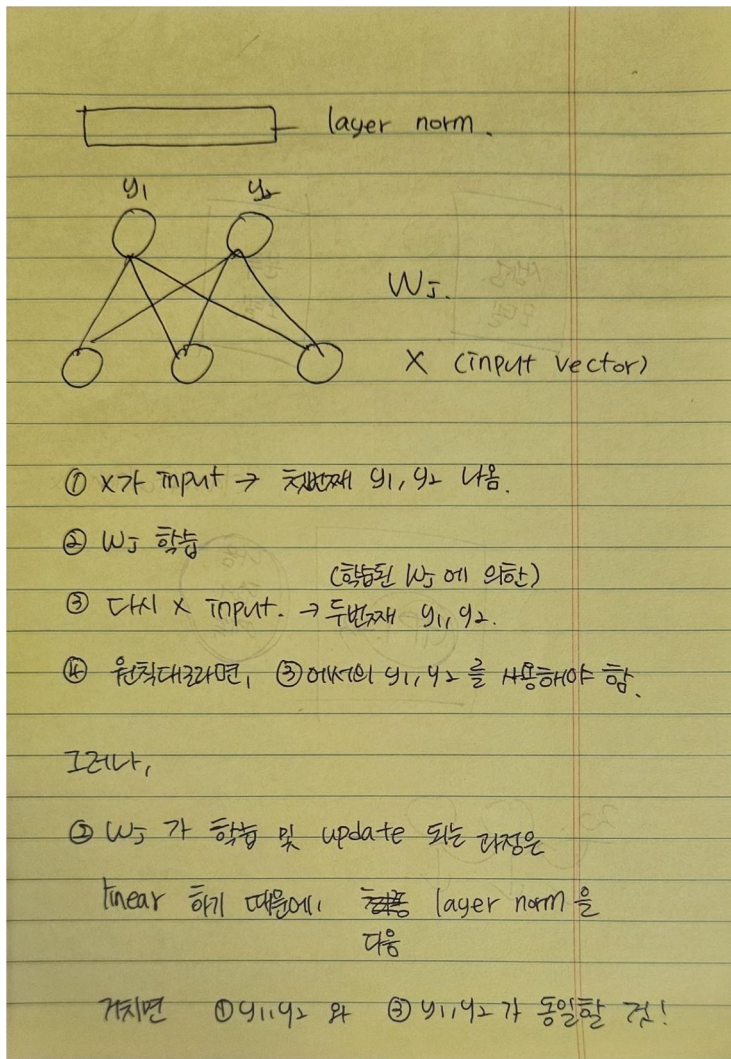 layer norm.
y1 y2
WJ.
X (input vector)
① X가 input → 첫번째 y1, y2 나옴.
② WJ 학습
(학습된 WJ에 의한)
③ 다시 X input. → 두번째 y1, y2.
④ 원칙대로라면, ③에서의 y1, y2를 사용해야 함.
그러나,
② WJ가 학습 및 update 되는 과정은
linear 하기 때문에, layer norm을
다음
거치면 ① y1, y2 와 ③ y1, y2가 동일할 것!